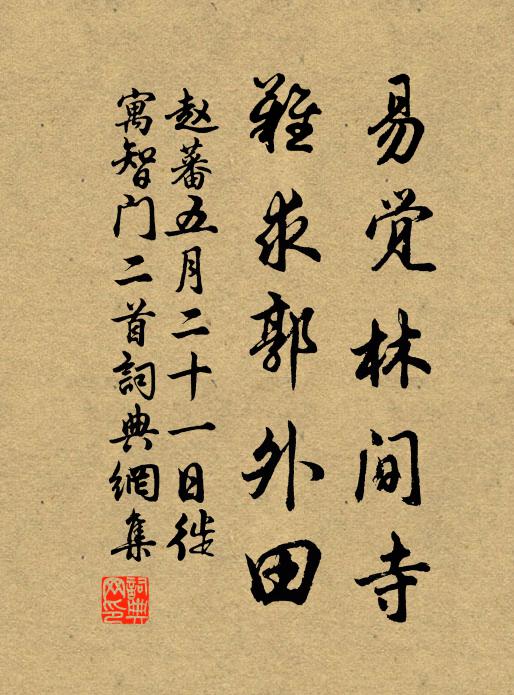 易觉林间寺
难求郭外田
赵蕃五月二十一日徙
寓智门二首詞典網集
詞典网印